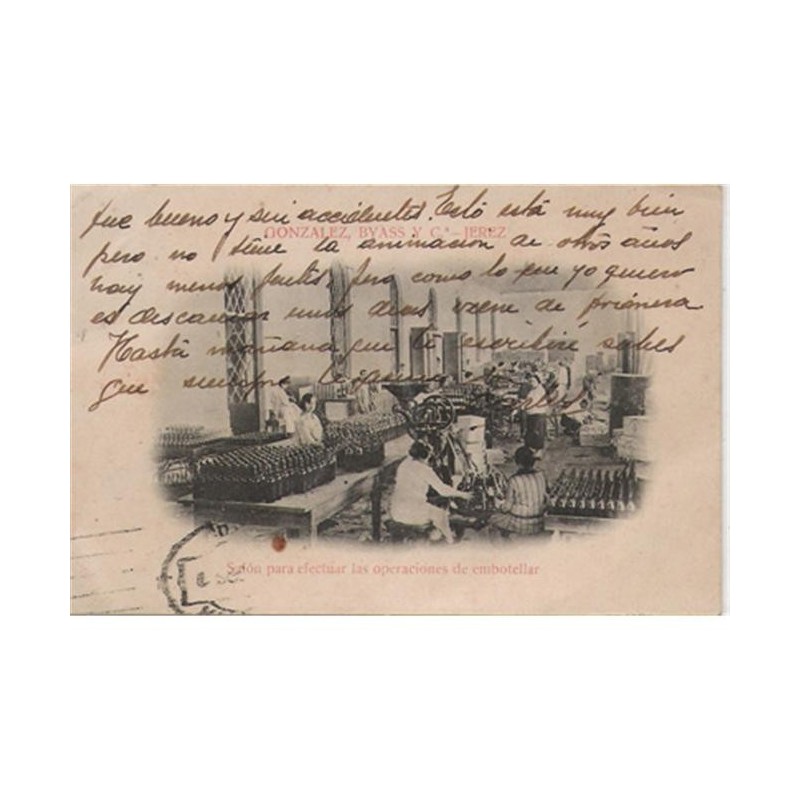 fue bueno y sin accidentes. Esto está muy bien
GONZALEZ, BYASS Y C.ª - JEREZ
pero no tiene la animacion de otros años
hay menos fuertes, pero como lo que yo quiero
es descansar unos dias viene de primera
Hasta mañana que te escribiré sabes
que siempre te
Salón para efectuar las operaciones de embotellar